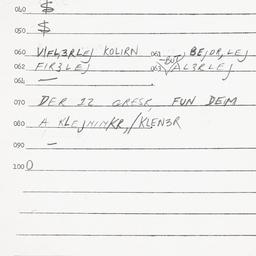 040 $
050 $
060 VIFL3RLEJ KOLIRN 061 -BUT BEJDR, LEJ
062 FIR3LEJ 063 AL3RLEJ
064 —
070 DER 12 ORESK, FUN DEIM
080 A KLEJNINKR,, / KLEN3R
090 —
100 0